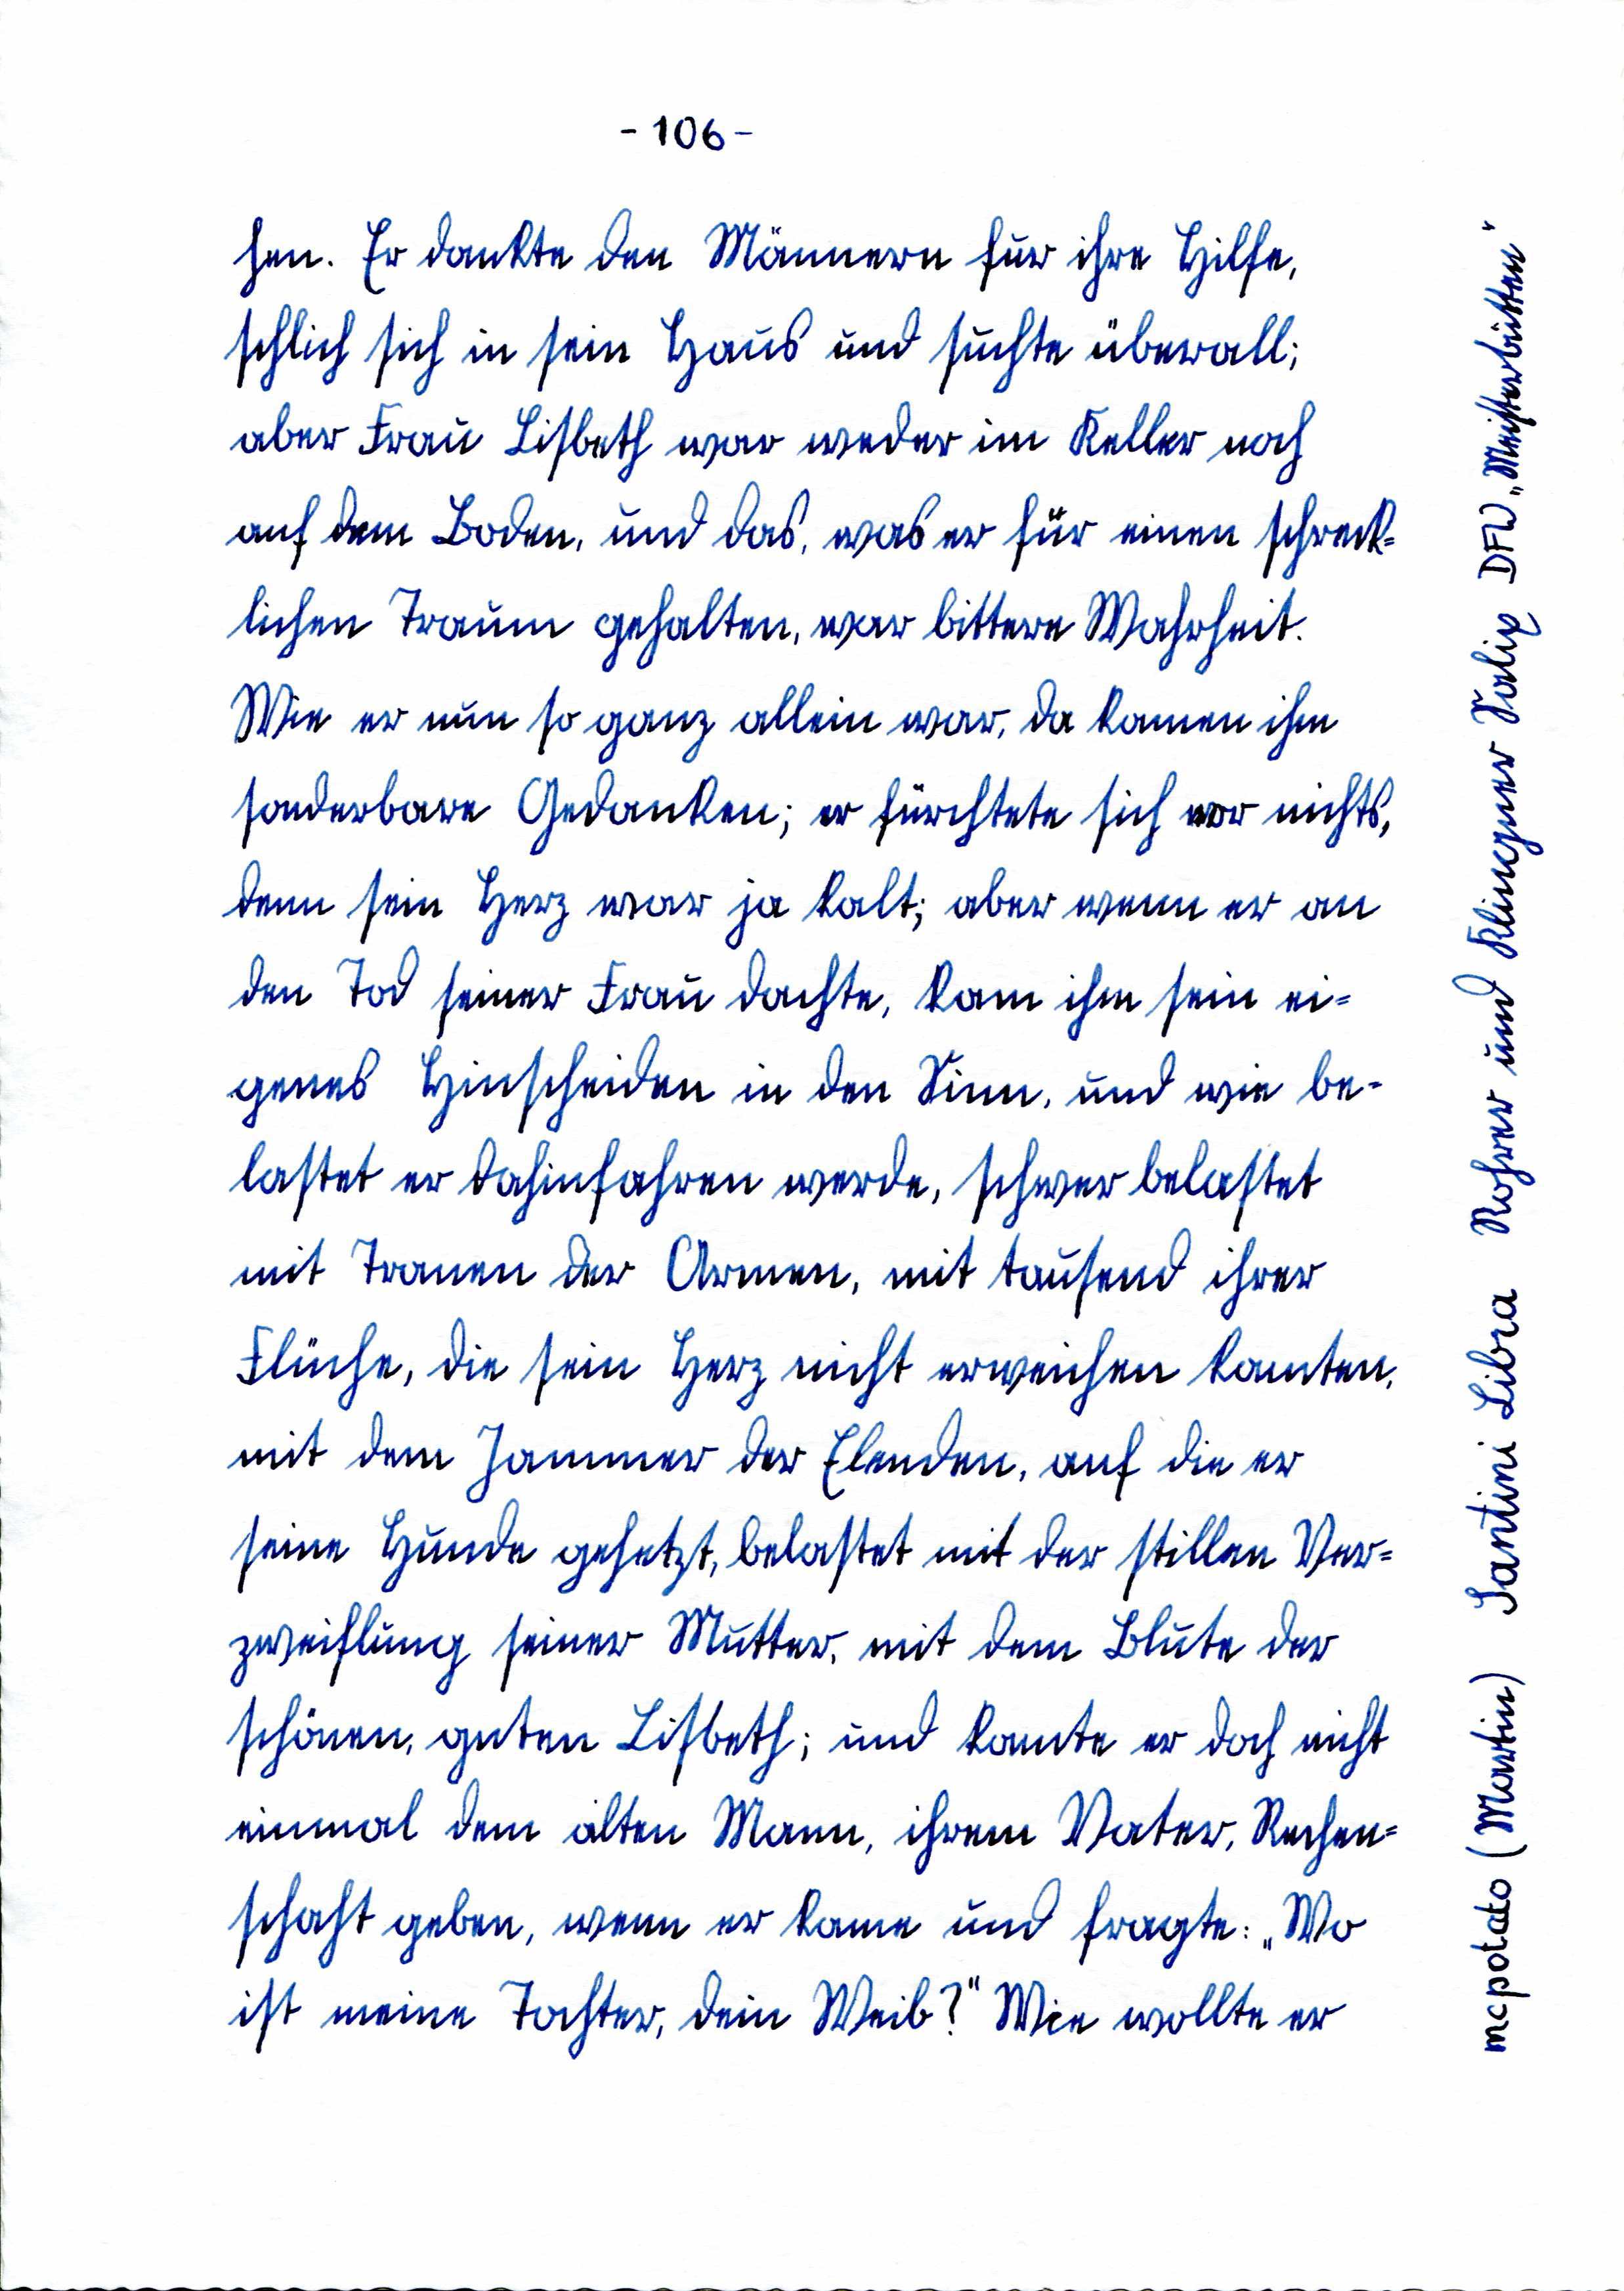 - 106 -
hen. Er dankte den Männern für ihre Hilfe,
schlich sich in sein Haus und suchte überall;
aber Frau Lisbeth war weder im Keller noch
auf dem Boden, und das, was er für einen schreck=
lichen Traum gehalten, war bittere Wahrheit.
Wie er nun so ganz allein war, da kamen ihm
sonderbare Gedanken; er fürchtete sich vor nichts,
denn sein Herz war ja kalt; aber wenn er an
den Tod seiner Frau dachte, kam ihm sein ei=
genes Hinscheiden in den Sinn, und wie be-
lastet er dahinfahren werde, schwer belastet
mit Tränen der Armen, mit tausend ihrer
Flüche, die sein Herz nicht erweichen konnten,
mit dem Jammer der Elenden, auf die er
seine Hunde gehetzt, belastet mit der stillen Ver=
zweiflung seiner Mutter, mit dem Blute der
schönen, guten Lisbeth; und konnte er doch nicht
einmal dem alten Mann, ihrem Vater, Rechen=
schaft geben, wenn er käme und fragte: „Wo
ist meine Tochter, dein Weib?" Wie wollte er
mcpotato (Martin) Santini Libra Rohrer und Klingner Salix DFW „Meisterbütten"